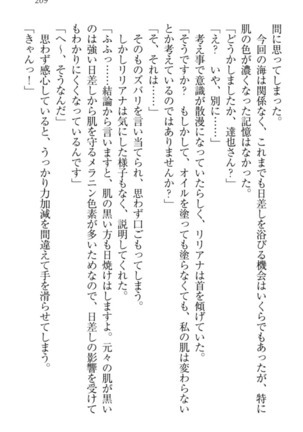 209
問に思ってしまった。
今回の海は関係なく、これまでも日差しを浴びる機会はいくらでもあったが、特に
肌の色が濃くなった記憶はなかった。
「どうかしましたか、達也さん？」
「え？　いや、別に……」
考え事で意識が散漫になっていたらしく、リリアナは首を傾げていた。
「そうですか？　もしかして、オイルを塗っても塗らなくても、私の肌は変わらない
とか考えているのではありませんか？」
「そ、それは……」
そのものズバリを言い当てられ、思わず口ごもってしまう。
しかしリリアナは気にした様子もなく、説明してくれた。
「ふふっ……結論から言いますと、肌の黒い方も日焼けはしますよ。元々の肌が黒い
のは強い日差しから肌を守るメラニン色素が多いためなので、日差しの影響を受けて
もわかりにくくなっているんです」
「へ～、そうなんだ」
思わず感心していると、うっかり力加減を間違えて手を滑らせてしまう。
「きゃんっ！」